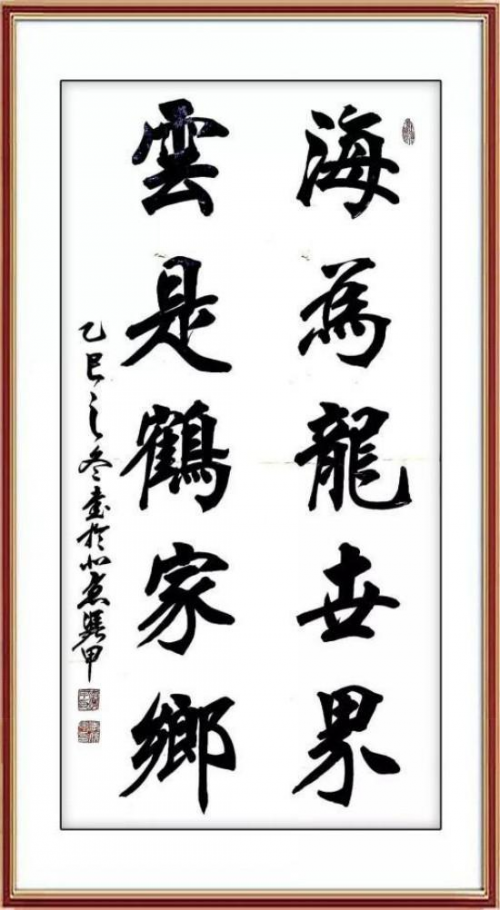 海為龍世界
雲是鶴家鄉
乙巳之冬書於北京